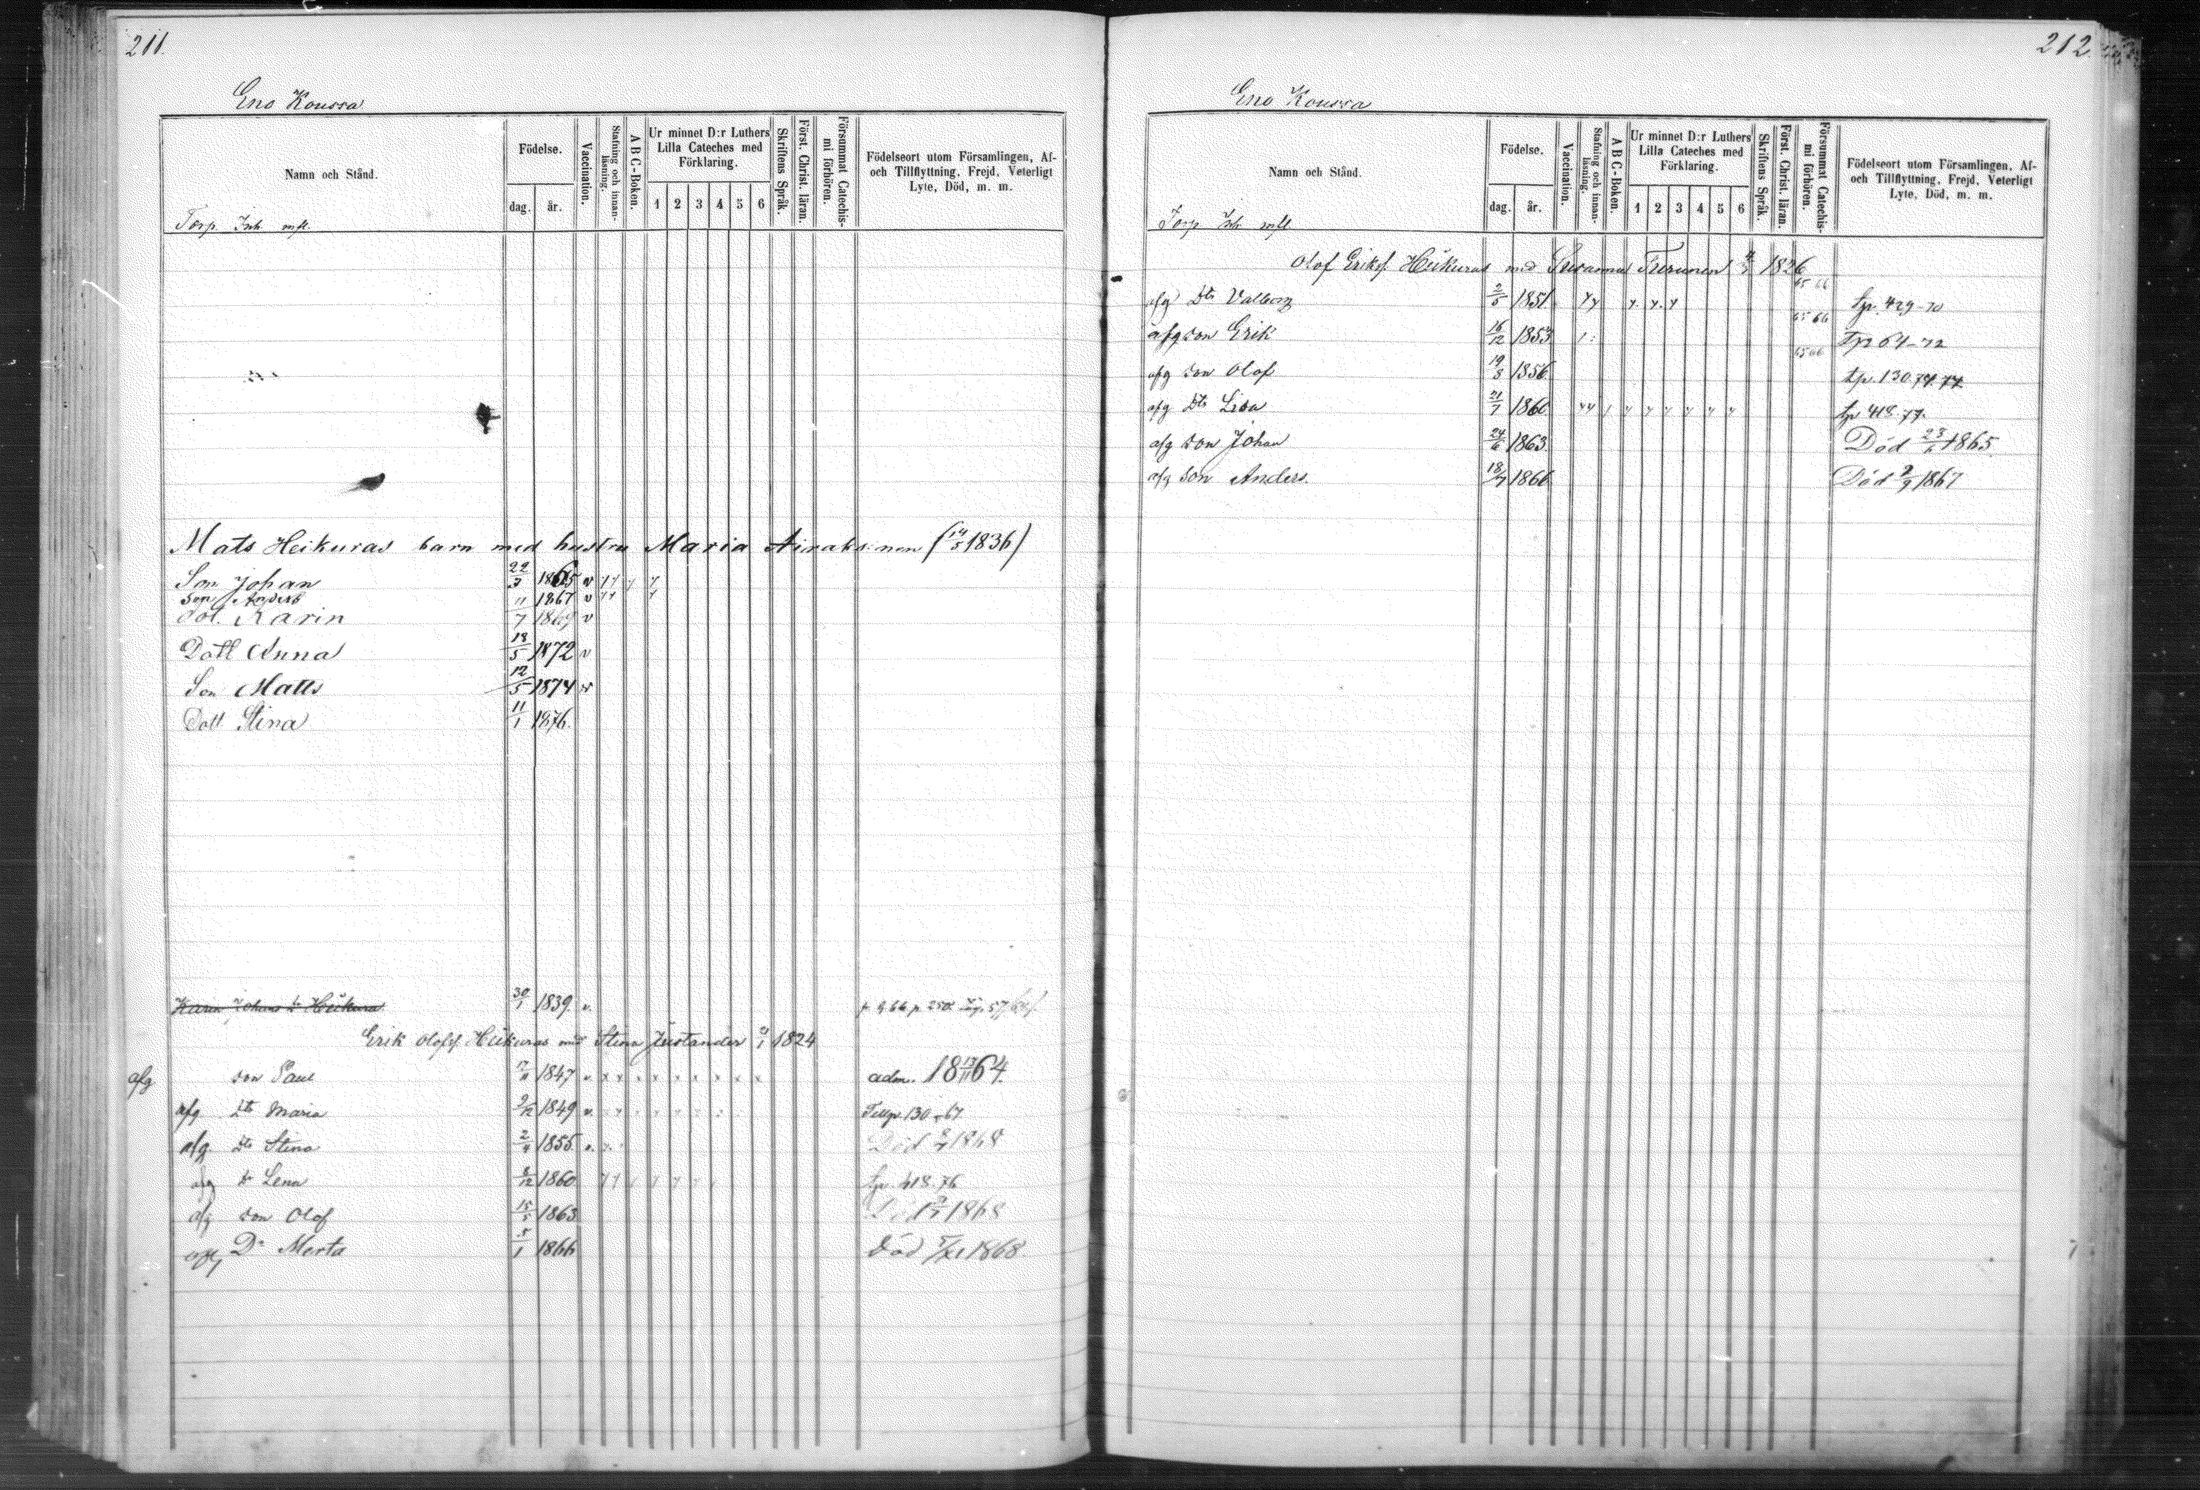 211.
Eno Koussa
Namn och Stånd.
Födelse.
dag.
år.
Vaccination.
Stafning och innan-
läsning.
A B C-Boken.
Ur minnet D:r Luthers
Lilla Cateches med
Förklaring.
1 2 3 4 5 6
Skriftens Språk.
Först. Christ. läran.
Försummat Catechis-
mi förhören.
Födelseort utom Församlingen, Af-
och Tillflyttning, Frejd, Veterligt
Lyte, Död, m. m.
Torp. Inh. mfl.
Mats Heikuras barn med hustru Maria Airaksinen (14/5 1836)
Son Johan 22/3 1865 v
Son Anders 11 1867 v
Dot. Karin 7 1869 v
Dott Anna 18/5 1872 v
Son Matts 12/5 1874 v
Dott Stina 11/1 1876.
Karin Johans dr Heikura 30/1 1839. v.
Erik Olofss. Heikuras med Stina 1824
afg son Paul 1847 v x x x x x x x x adm. 18 64.
afg Dtr Maria 1849 v. 130-67
afg. Dtr Stina 1855 v. Död 1868
afg dr Lena 8/12 1860 tp. 418.76
afg son Olof 15/5 1863 Död 1868
afg Dr Merta 5/1 1866 Död 1868.
212.
Eno Koussa
Namn och Stånd.
Födelse.
dag.
år.
Vaccination.
Stafning och innan-
läsning.
A B C-Boken.
Ur minnet D:r Luthers
Lilla Cateches med
Förklaring.
1 2 3 4 5 6
Skriftens Språk.
Först. Christ. läran.
Försummat Catechis-
mi förhören.
Födelseort utom Församlingen, Af-
och Tillflyttning, Frejd, Veterligt
Lyte, Död, m. m.
Torp Inh mfl
Olof Eriks. Heikuras med Susanna 1826
afg Dtr Valborg 2/5 1851. 65 66 tp. 429-70
afg son Erik 16/12 1853 65 66 Tp 64-72
afg son Olof 19/8 1856 65 66 tp. 130
afg Dtr Lisa 21/7 1860 tp 418.77.
afg son Johan 24/6 1863. Död 1865.
afg son Anders. 18/7 1866 Död 1867